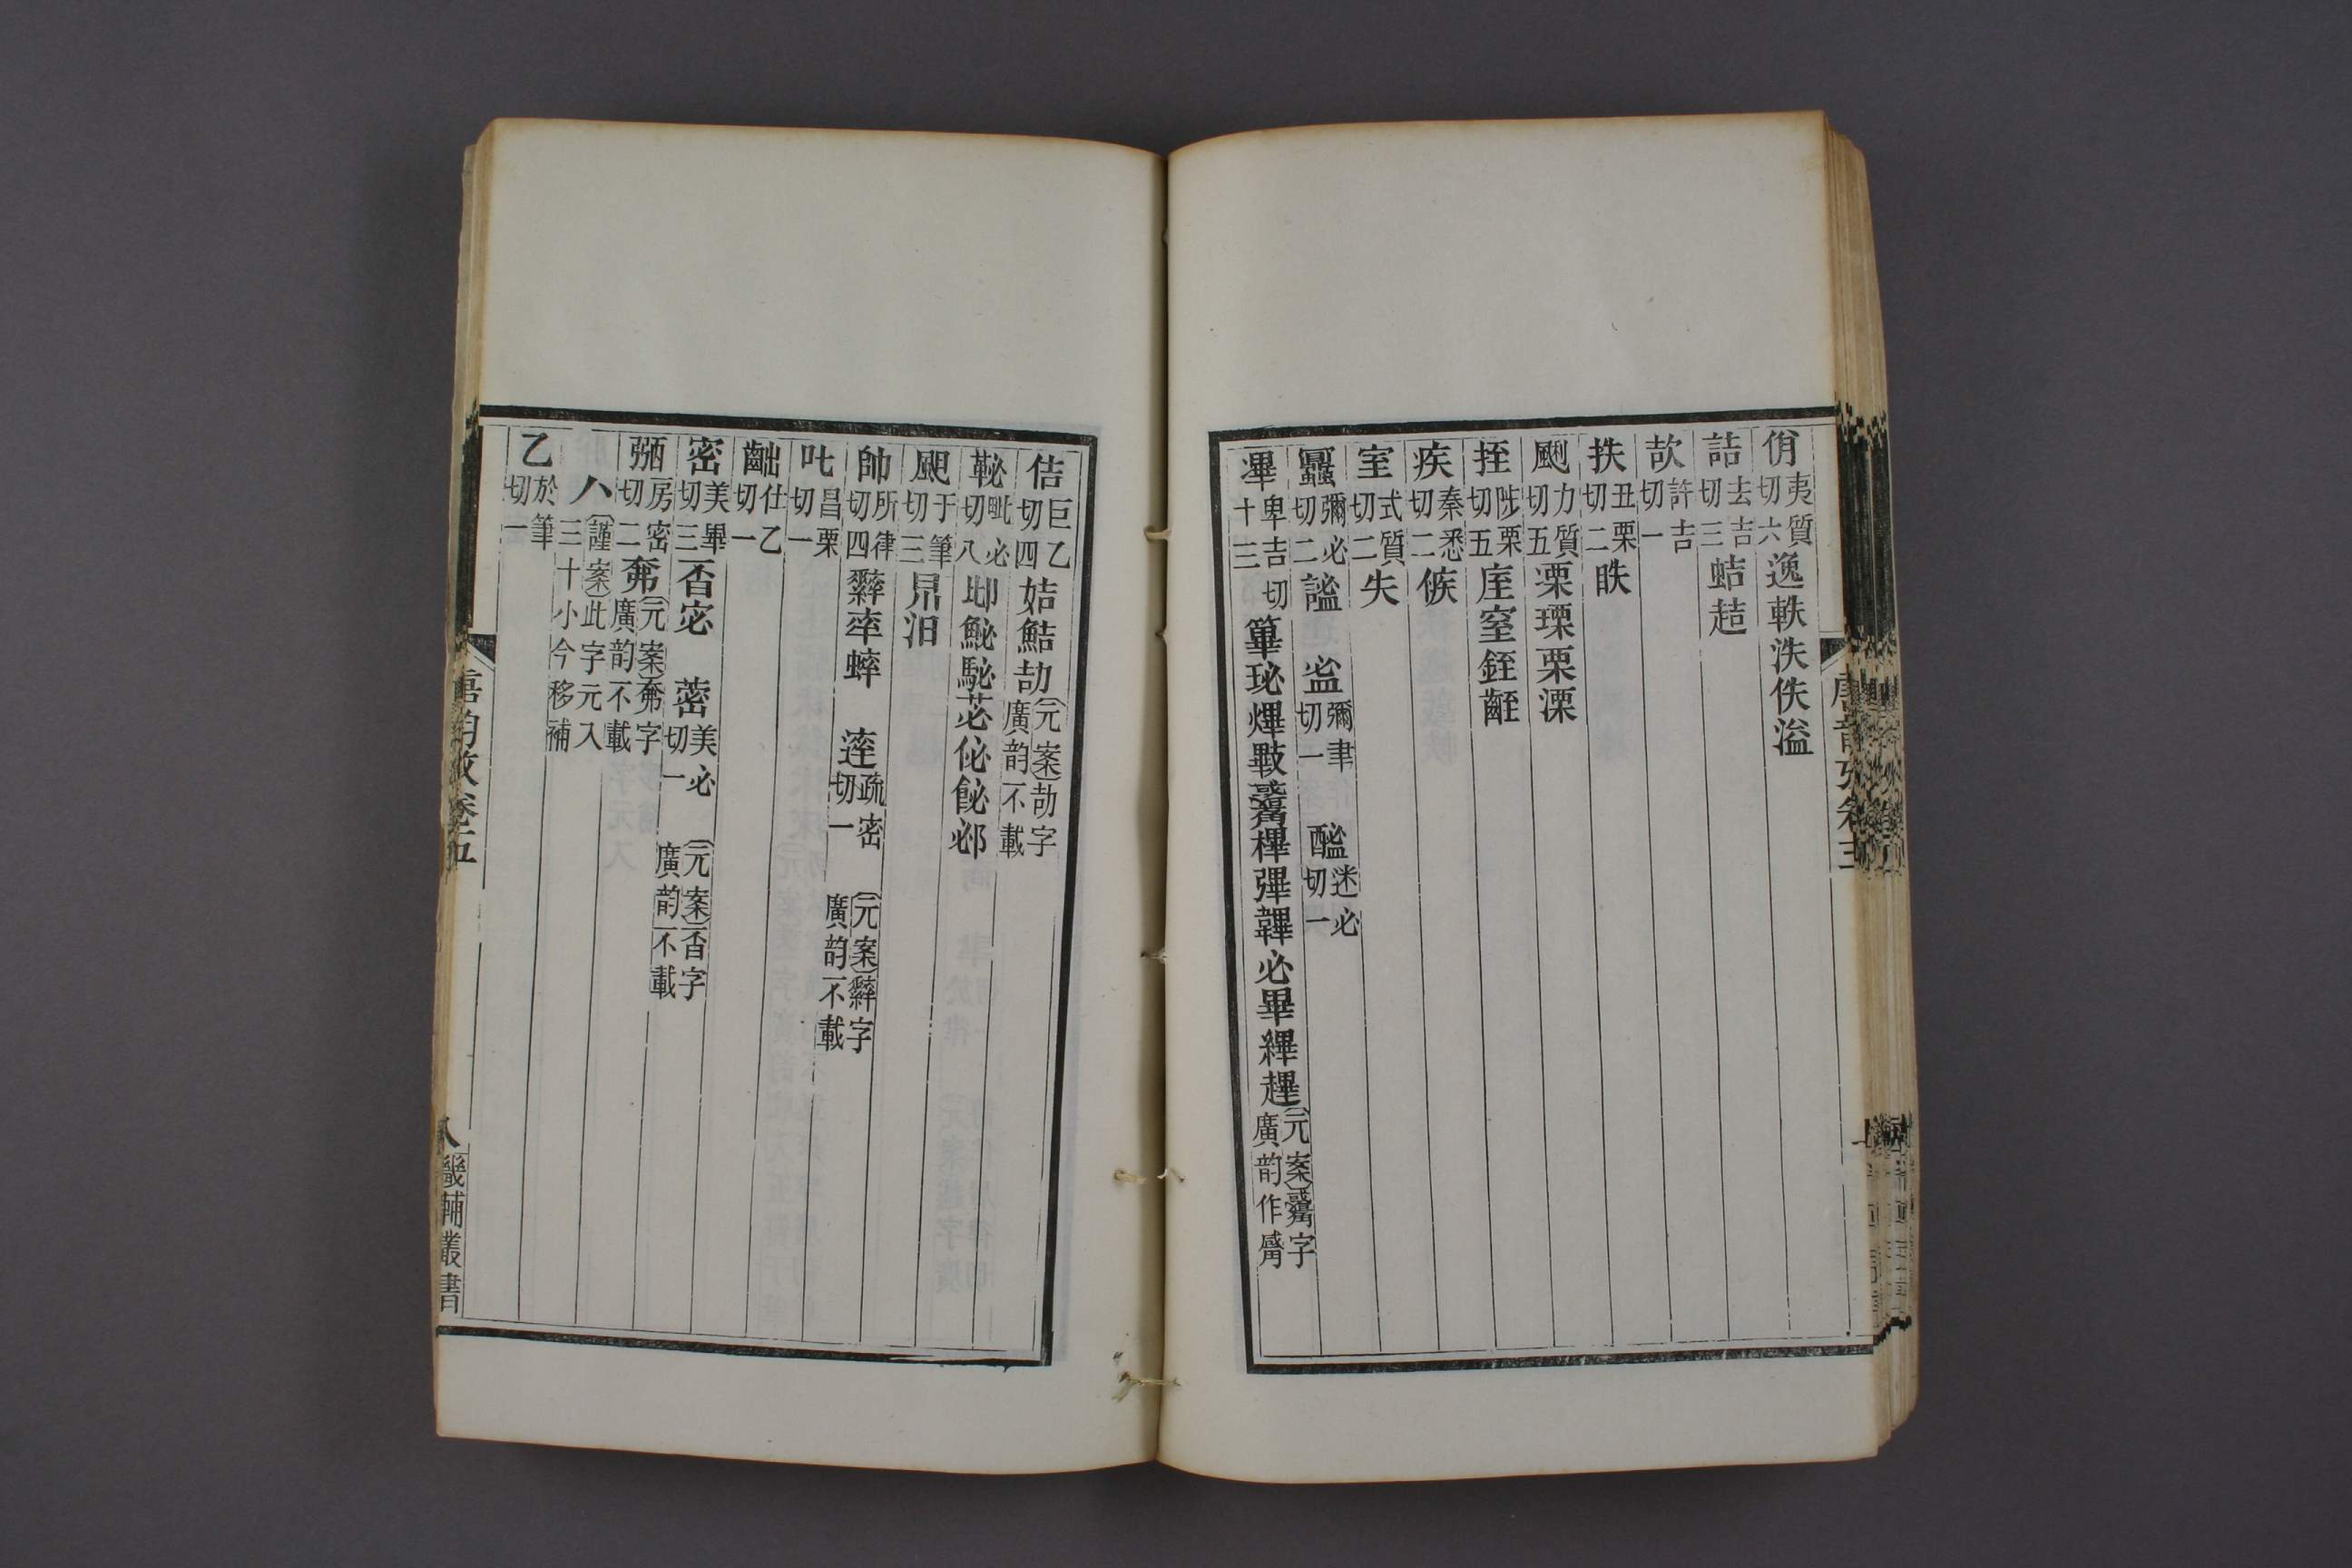 佾夷質切六逸軼泆佚溢
詰去吉切三蛣趌
欯許吉切一
抶丑栗切二眣
颲力質切五凓瑮栗溧
挃陟栗切五庢窒銍䶡
疾秦悉切二㑵
室式質切二失
蠠彌必切二謐 㿴彌畢切一 醯迷必切一
㪤卑吉切十三篳珌熚䟆㓖㮿彃韠必畢縪趩〔元案〕㓖字廣韵作觱
佶巨乙切四姞鮚劼〔元案〕劼字廣韵不載
䩛毗必切八邲鮅駜苾佖飶䣥
颶于筆切三昦汨
帥所律切四䢦率蟀 逹疏密切一 〔元案〕字廣韵不載
叱昌栗切一
齜仕乙切一
密美畢切三否宓 蔤美必切一 〔元案〕否字廣韵不載
弼房密切二㢸〔元案〕㢸字廣韵不載
八〔謹案〕此字元入三十小今移補
乙於筆切一
唐韵攷卷五
八 畿輔叢書